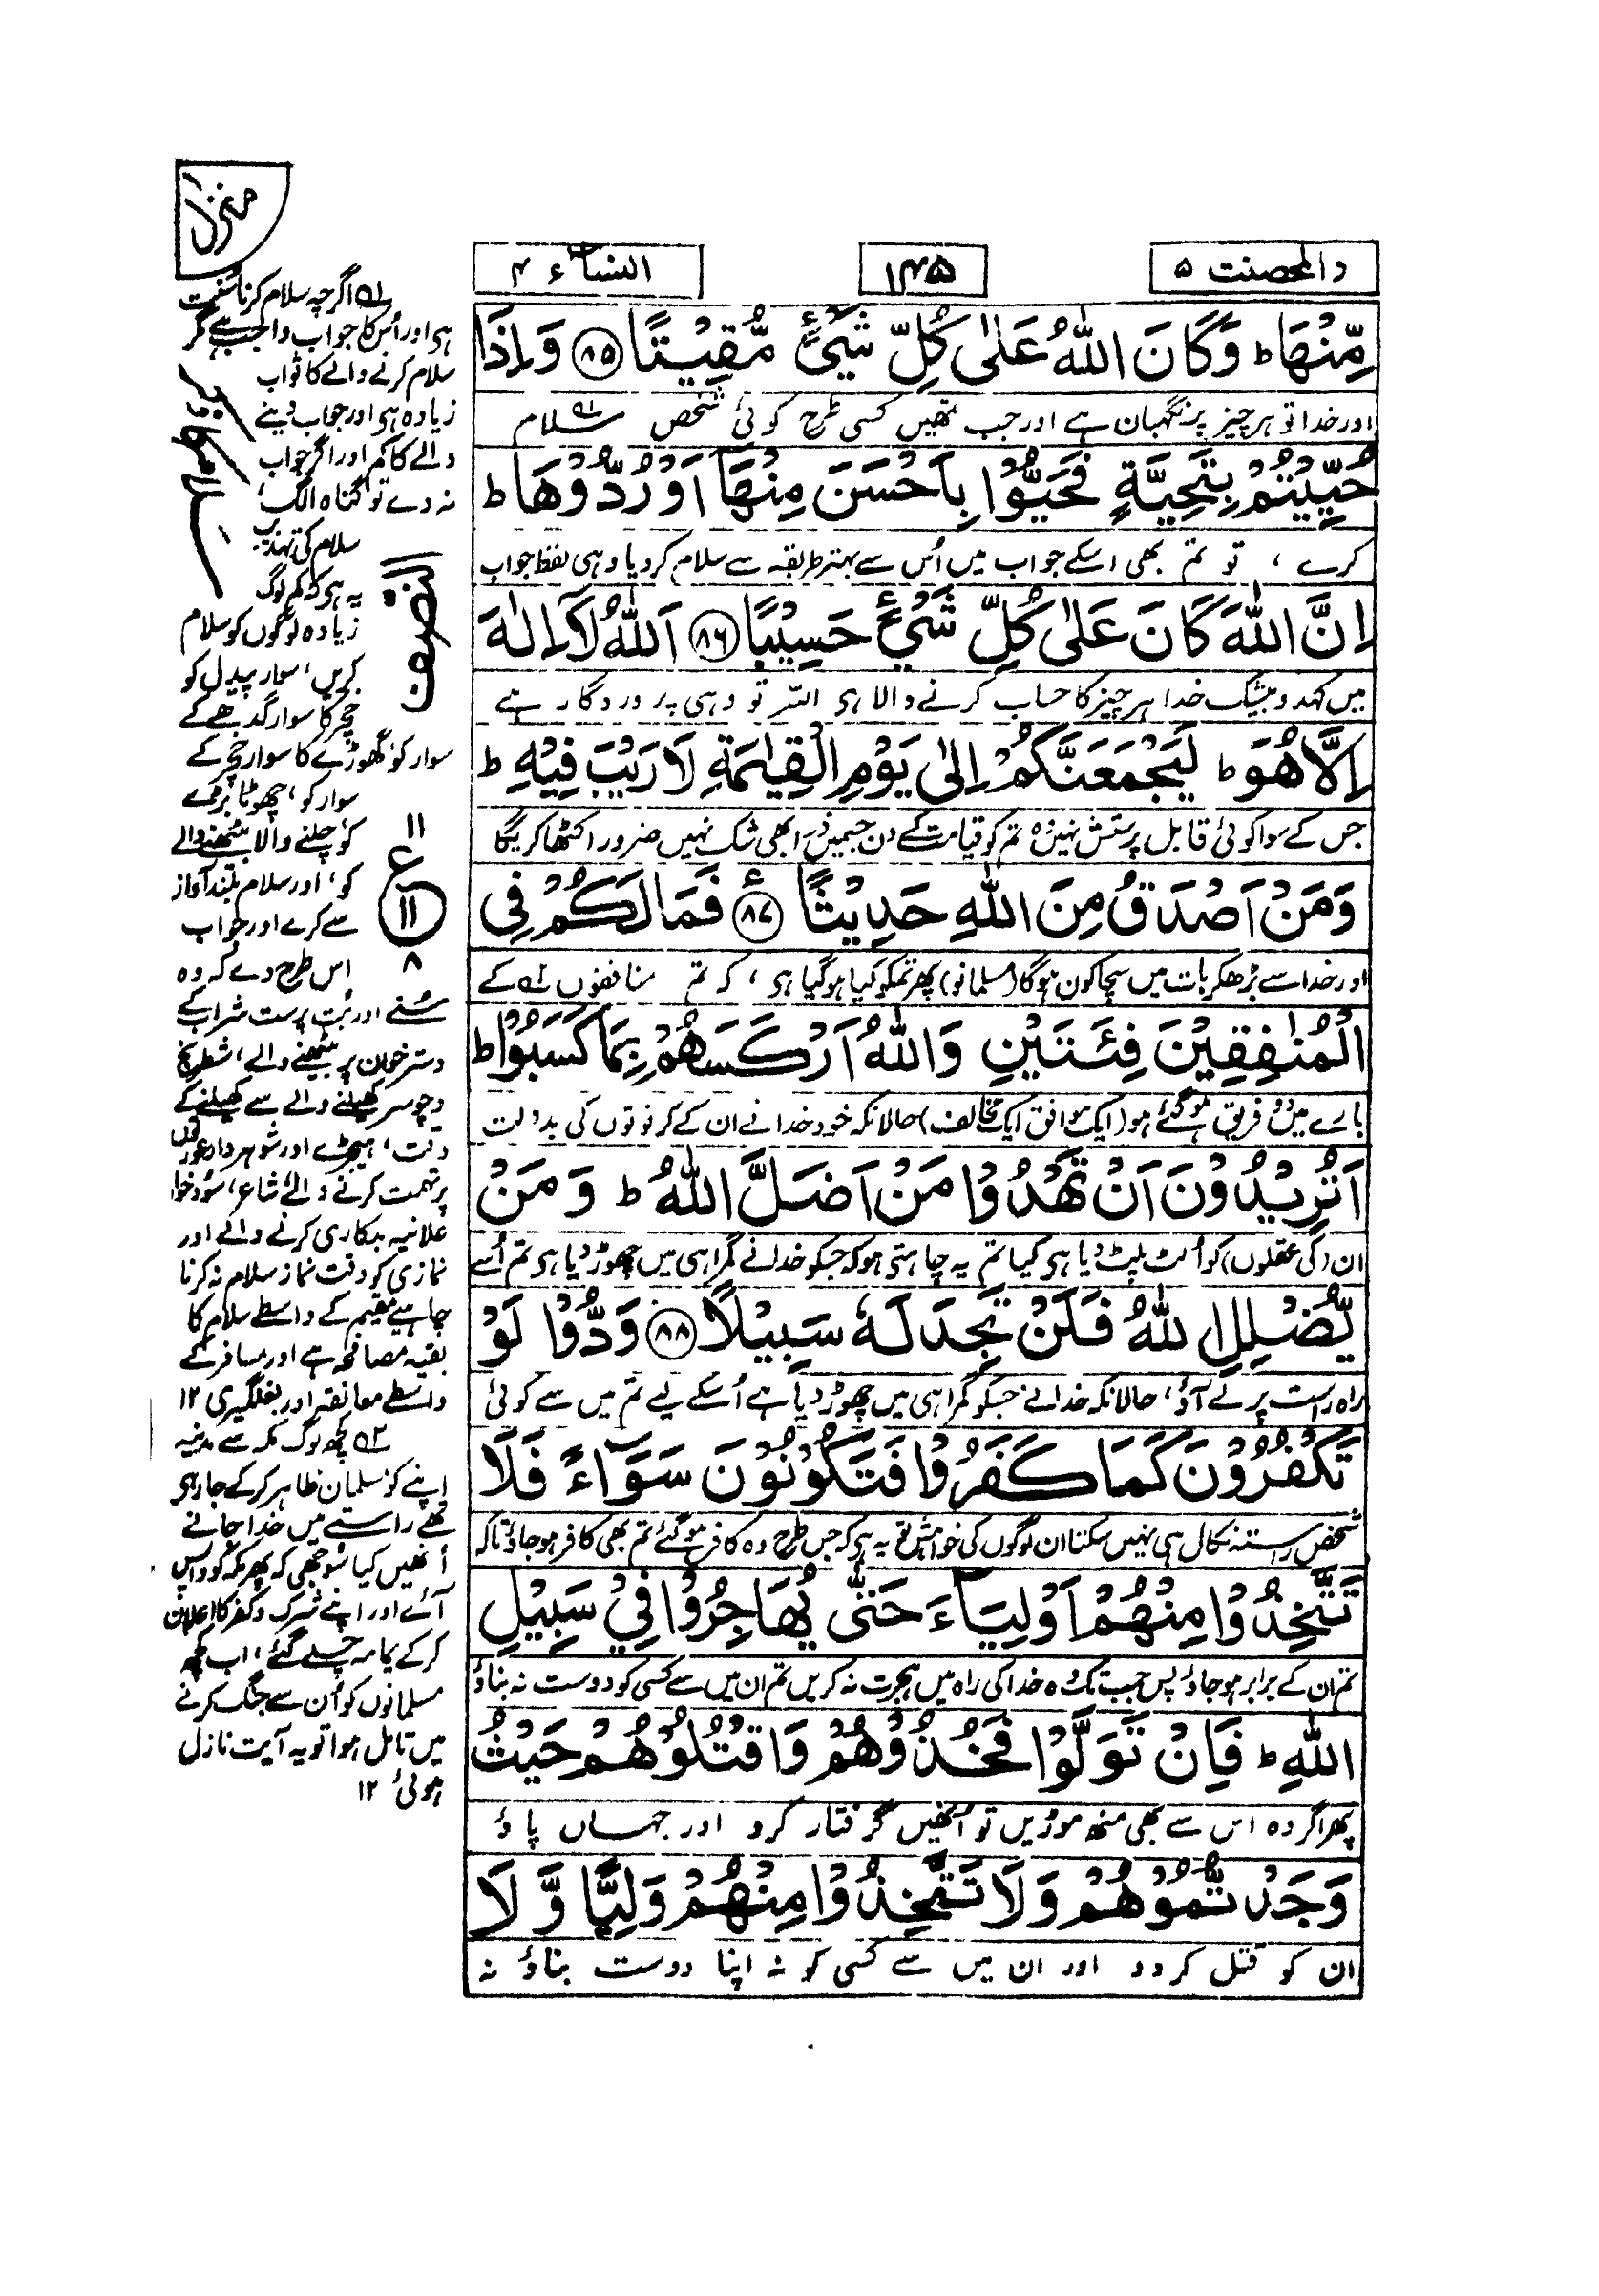 والمحصنت ۵
۱۴۵
النساء ۴
مِّنْهَا ؕ وَكَانَ اللّٰهُ عَلٰى كُلِّ شَیْءٍ مُّقِیْتًا ﴿۸۵﴾ وَاِذَا
اور خدا تو ہر چیز پر نگہبان ہے اور جب تمھیں کسی طرح کوئی شخص سلام
حُیِّیْتُمْ بِتَحِیَّةٍ فَحَیُّوْا بِاَحْسَنَ مِنْهَا اَوْ رُدُّوْهَا ؕ
کرے ، تو تم بھی اسکے جواب میں اُس سے بہتر طریقہ سے سلام کرو یا وہی لفظ جواب
اِنَّ اللّٰهَ كَانَ عَلٰى كُلِّ شَیْءٍ حَسِیْبًا ﴿۸۶﴾ اَللّٰهُ لَاۤ اِلٰهَ
میں کہدو بیشک خدا ہر چیز کا حساب کرنے والا ہی اللہ تو وہی پروردگار ہے
اِلَّا هُوَ ؕ لَیَجْمَعَنَّكُمْ اِلٰى یَوْمِ الْقِیٰمَةِ لَا رَیْبَ فِیْهِ ؕ
جس کے سوا کوئی قابل پرستش نہیں وہ تم کو قیامت کے دن جسمیں ذرا بھی شک نہیں ضرور اکٹھا کریگا
وَمَنْ اَصْدَقُ مِنَ اللّٰهِ حَدِیْثًا ﴿۸۷﴾ فَمَا لَكُمْ فِی
اور خدا سے بڑھکر بات میں سچا کون ہوگا (مسلمانو) پھر تمکو کیا ہوگیا ہی ، کہ تم منافقوں کے
الْمُنٰفِقِیْنَ فِئَتَیْنِ وَاللّٰهُ اَرْكَسَهُمْ بِمَا كَسَبُوْا ؕ
بارے میں دو فریق ہوگئے ہو (ایک موافق ایک مخالف) حالانکہ خود خدا نے ان کے کرتوتوں کی بدولت
اَتُرِیْدُوْنَ اَنْ تَهْدُوْا مَنْ اَضَلَّ اللّٰهُ ؕ وَمَنْ
ان (کی عقلوں) کو اُلٹ پلٹ دیا ہی کیا تم یہ چاہتے ہو کہ جسکو خدا نے گمراہی میں چھوڑ دیا ہی تم اُسے
یُّضْلِلِ اللّٰهُ فَلَنْ تَجِدَ لَهٗ سَبِیْلًا ﴿۸۸﴾ وَدُّوْا لَوْ
راہ راست پر لے آؤ ، حالانکہ خدا نے جسکو گمراہی میں چھوڑ دیا ہے اُسکے لیے تم میں سے کوئی
تَكْفُرُوْنَ كَمَا كَفَرُوْا فَتَكُوْنُوْنَ سَوَآءً فَلَا
شخص راستہ نکال ہی نہیں سکتا ان لوگوں کی خواہش تو یہ ہی کہ جس طرح وہ کافر ہوگئے تم بھی کافر ہو جاؤ تاکہ
تَتَّخِذُوْا مِنْهُمْ اَوْلِیَآءَ حَتّٰى یُهَاجِرُوْا فِیْ سَبِیْلِ
تم ان کے برابر ہو جاؤ پس جب تک وہ خدا کی راہ میں ہجرت نہ کریں تم ان میں سے کسی کو دوست نہ بناؤ
اللّٰهِ ؕ فَاِنْ تَوَلَّوْا فَخُذُوْهُمْ وَاقْتُلُوْهُمْ حَیْثُ
پھر اگر وہ اس سے بھی منھ موڑیں تو اُنھیں گرفتار کرو اور جہاں پاؤ
وَجَدْتُّمُوْهُمْ وَلَا تَتَّخِذُوْا مِنْهُمْ وَلِیًّا وَّلَا
ان کو قتل کر دو اور ان میں سے کسی کو نہ اپنا دوست بناؤ نہ
منزل۱
۱ اگرچہ سلام کرنا سُنت
ہی اور اُس کا جواب واجب ہے مگر
سلام کرنے والے کا ثواب
زیادہ ہی اور جواب دینے
والے کا کم اور اگر جواب
نہ دے تو گناہ الگ ،
سلام کی تہذیب
یہ ہی کہ کم لوگ
زیادہ لوگوں کو سلام
کریں ، سوار پیدل کو
خچر کا سوار گدھے کے
سوار کو ، گھوڑے کا سوار خچر کے
سوار کو ، چھوٹا بڑے
کو ، چلنے والا بیٹھنے والے
کو ، اور سلام بلند آواز
سے کرے اور جواب
اس طرح دے کہ وہ
سُنے اور بُت پرست شراب کے
دسترخوان پر بیٹھنے والے ، شطرنج
و چوسر کھیلنے والے سے کھیلنے کے
وقت ، ہیجڑے اور شوہر دار عورتوں
پر تہمت کرنے والے شاعر ، سود خوار
علانیہ بدکاری کرنے والے اور
نمازی کو وقت نماز سلام نہ کرنا
چاہیے مقیم کے واسطے سلام کا
بقیہ مصافحہ ہے اور مسافر کے
واسطے معانقہ اور بغلگیری ۱۲
۲ کچھ لوگ مکہ سے مدینہ
اپنے کو مسلمان ظاہر کرکے جا رہی
تھے راستے میں خدا جانے
اُنھیں کیا سُوجھی کہ پھر مکہ کو واپس
آئے اور اپنے شرک و کفر کا اعلان
کرکے یمامہ چلے گئے ، اب کچھ
مسلمانوں کو اُن سے جنگ کرنے
میں تامل ہوا تو یہ آیت نازل
ہوئی ۱۲
النصف
۱۱
ع
۱۱
۸